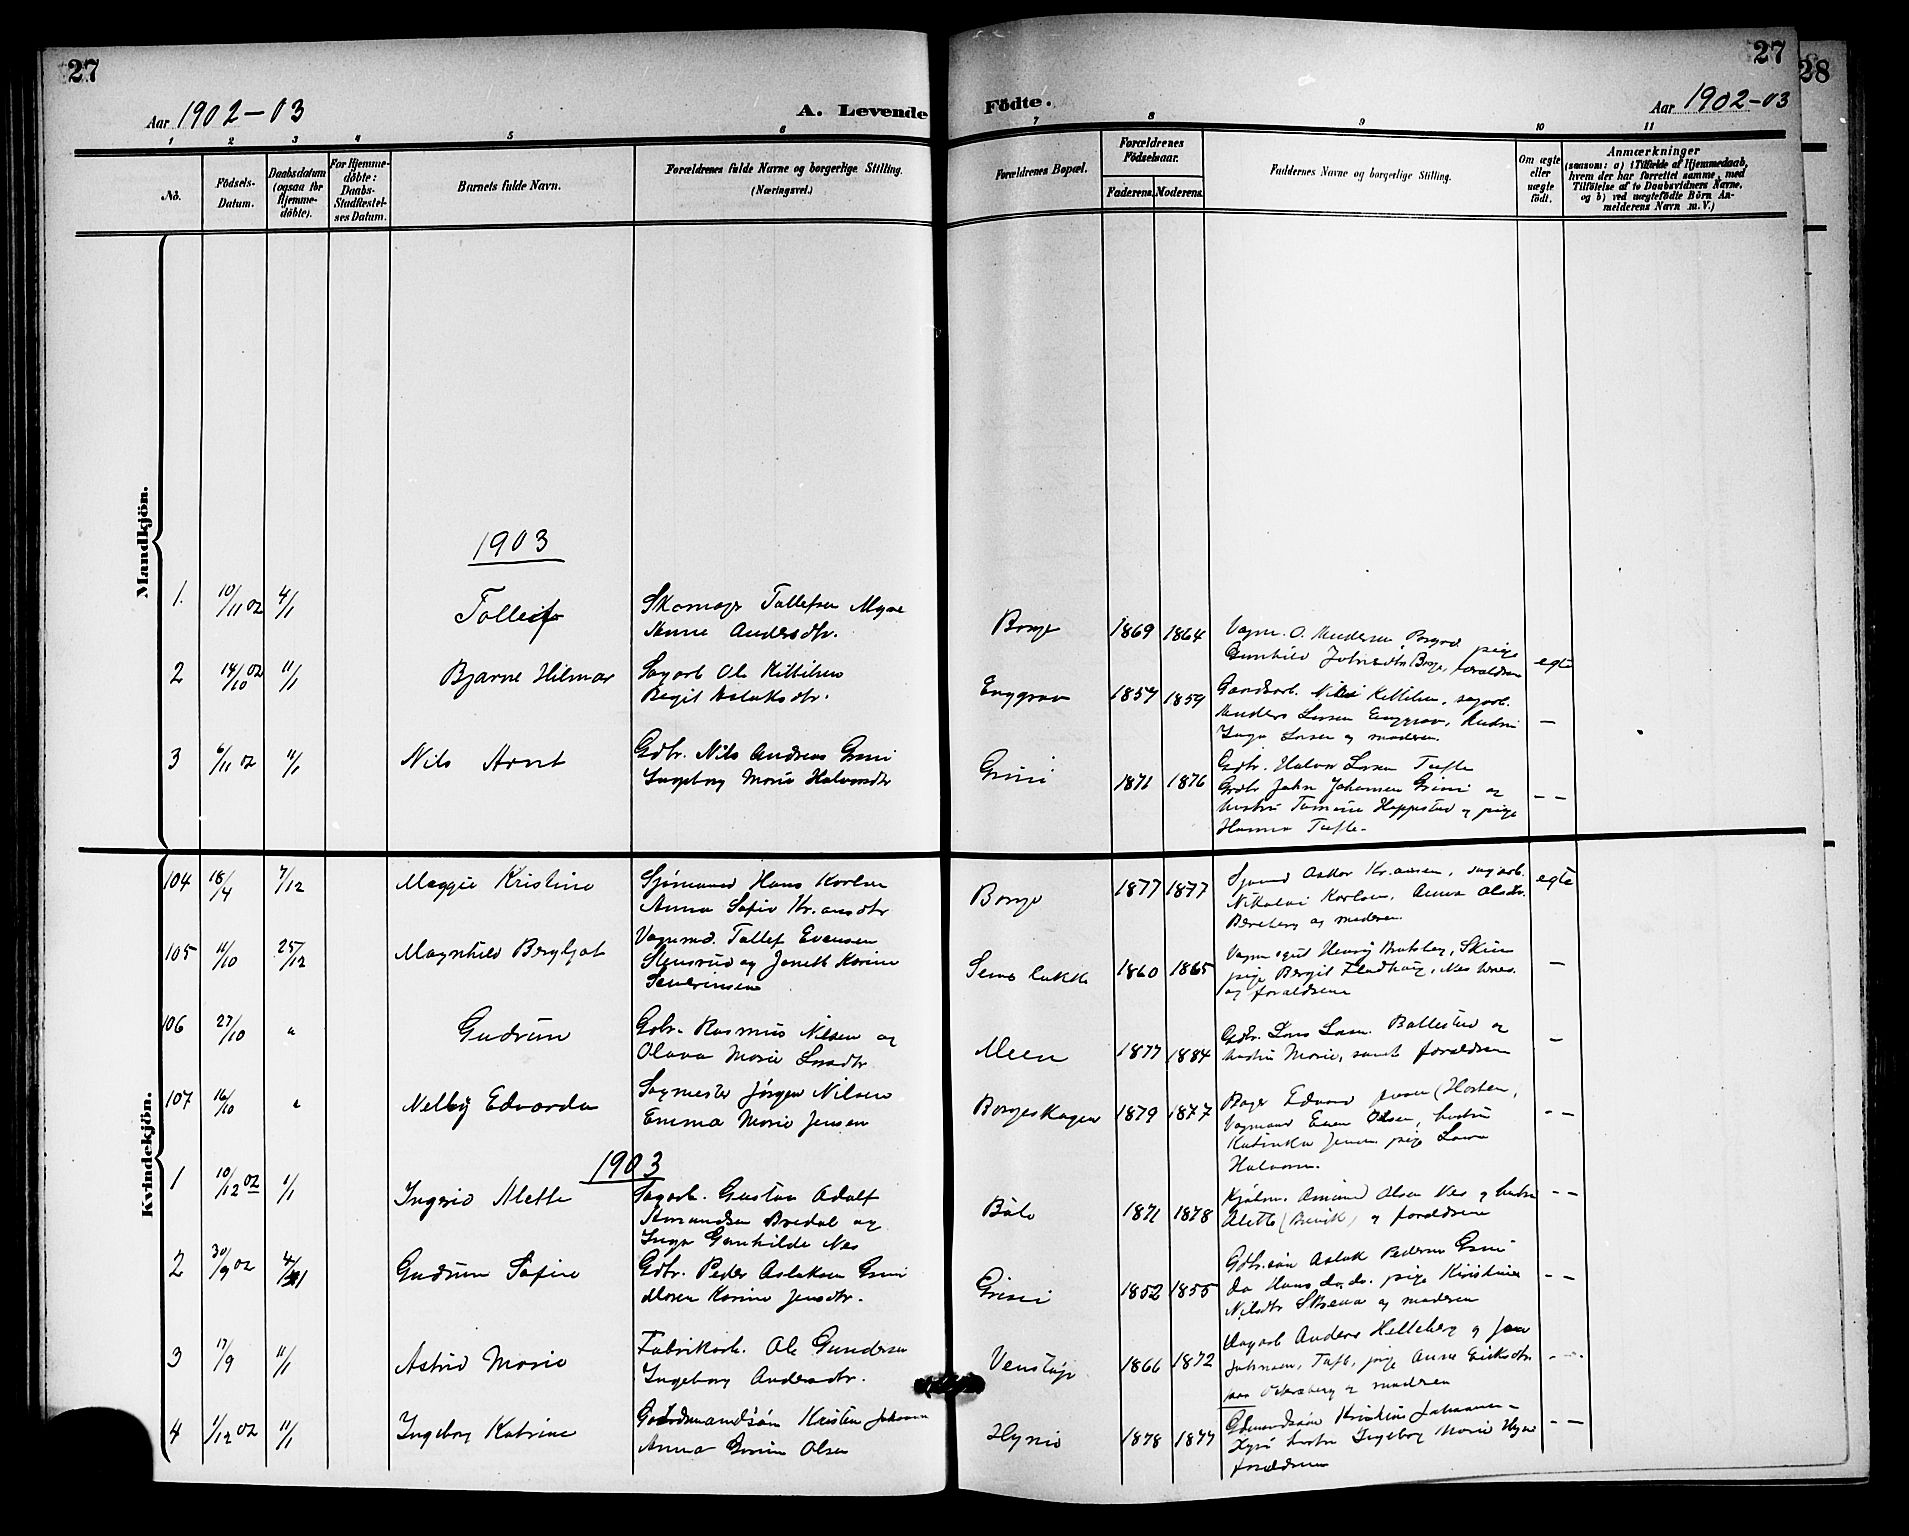 27
27
28
Aar 1902-03
A. Levende
Födte.
Aar 1902-03
1 2 3 4 5 6 7 8 9 10 11
No.
Födsels-
Datum.
Daabsdatum
(ogsaa for
Hjemme-
döbte).
For Hjemme-
döbte:
Daabs-
Stadfæstel-
ses Datum.
Barnets fulde Navn.
Forældrenes fulde Navne og borgerlige Stilling.
(Næringsvei.)
Forældrenes Bopæl.
Forældrenes
Födselsaar.
Faderens.
Moderens.
Faddernes Navne og borgerlige Stilling.
Om ægte
eller
uægte
födt.
Anmærkninger
(saasom: a) i Tilfælde af Hjemmedaab,
hvem der har forrettet samme, med
Tilföielse af to Daabsvidners Navne,
og b) ved uægtefödte Börn An-
melderens Navn m. V.)
Mandkjön.
1903
1. 10/11 02 4/1 Tollef
Skomager Tollefsen Myre
Anne Andersdtr.
Borge 1869 1864
Vogm. O. Andersen Borge pige
Gunhild Johnsdtr Borge, forældrene
egte
2 14/10 02 11/1 Bjarne Hilmar
Sagarb. Ole Kittilsen
Begit Aslaksdtr.
Enggrav 1857 1859
Nils Kittilsen, sagarb.
Anders Larsen Enggrav, hustru
Inga Larsen og moderen.
—
3 6/11 02 11/1 Nils Arnt
Gdbr. Nils Andreas Grini
Ingeborg Marie Halvorsdtr
Grini 1871 1876
Gdbr. Halvor Larsen Tufte
Gdbr John Johansen Grini og
hustru Tomine Heppestad og pige
Hanna Tufte.
— —
Kvindekjön.
104 18/4 7/12 Maggie Kristine
Sjömand Hans Karlsen
Anna Sofie Kr.ansdtr
Borge 1877 1877
Sjömd Oskar Kr.ansen, sagarb.
Nikolai Karlsen, Anna Olsdtr.
Bereberg og moderen.
egte
105 11/10 25/12 Magnhild Bergljot
Vognmd. Tollef Evensen
Stensrud og Janett Karine
Severinsen
1860 1865
Henry Bratsberg, Skien
pige Bergit
og forældrene
—
106 27/10 " Gudrun
Gdbr. Rasmus Nilsen og
Olava Marie Larsdtr
Meen 1877 1884
Gdbr. Lars Larsen Ballestad og
hustru Marie, samt forældrene
—
107 16/10 " Nelly Edvarda
Sagmester Jörgen Nilsen
Emma Marie Jensen
Borgeskogen 1879 1877
Bager Edvard Jensen (Horten),
Vogmand Even Olsen, hustru
Katinka Jensen pige Laura
Halvorsen.
— —
1903
1 10/12 02 1/1 Ingrid Alette
Sagarb. Gustav Adolf
Amundsen Bredal og
Inga Gunhilde Nes
Böle 1871 1878
Amund Olsen Nes og hustru
Alette (Brevik) og forældrene
— —
2 30/9 02 4/1 Gudrun Sofie
Gdbr. Peder Aslaksen Grini
Maren Karine Jensdtr.
Grini 1852 1855
Gdbr.sön Aslak Pedersen Grini
do Hans do. do. pige Kristine
Nilsdtr Skrena og moderen
— —
3 17/9 11/1 Astrid Marie
Fabrikarb. Ole Gundersen
Ingeborg Andersdtr.
Venstöp 1866 1872
Anders Helleberg og
Johnsen, Tufte, pige Anne Eriksdtr
og moderen
— —
4 1/12 02 11/1 Ingeborg Katrine
Gaardmandsön Kristen Johansen
Anna Olsen
Hynie 1878 1877
Gdmandsön Kristian Johannesen
hustru Ingeborg Marie
forældrene
— —